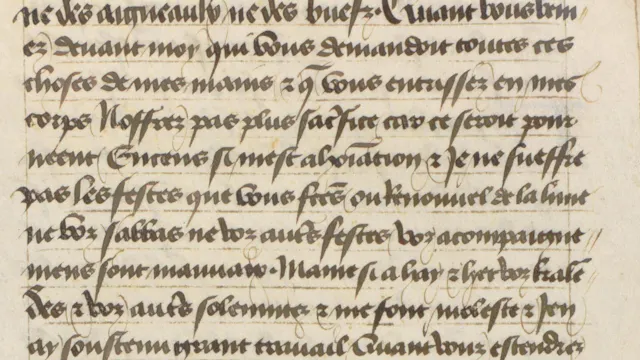 ne des aigneaulx ne des buefz. Quant vous ven
ez deuant moy qui vous demandoit toutes ces
choses de mes mains ⁊ q̃ vous entrissez en mes
corps Noffrez pas plus sac̃fice car ce seroit pour
neent Encens si mest abhõiation ⁊ Je ne sueffre
pas les festes que vous fc̃es ou Renouuel de la lune
ne voz sabbas ne voz aut̃s festes voz acompaigne
mens sont mauuaix. Mame si a hay ⁊ het voz kalẽ
des ⁊ voz aut̃s solemnitez ⁊ me sont moleste ⁊ Jen
ay soustenu grant trauail Quant vous estendrez